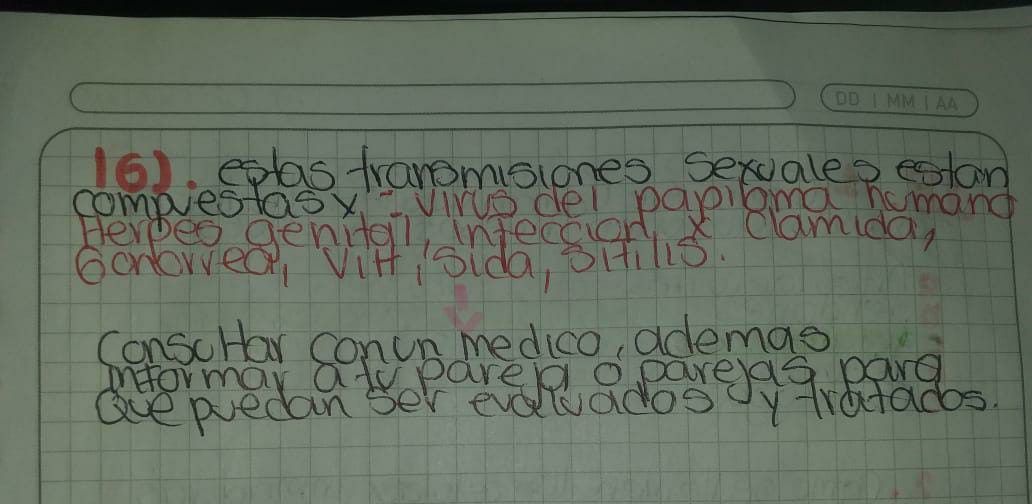 DD | MM | AA
16). estas transmisiones sexuales estan
compuestas x - virus del papiloma humano
Herpes genital, infeccion x clamida,
Gonorrea, ViH, sida, sifilis.
Consultar con un medico, ademas
informar a tu pareja o parejas para
que puedan ser evaluados y tratados.